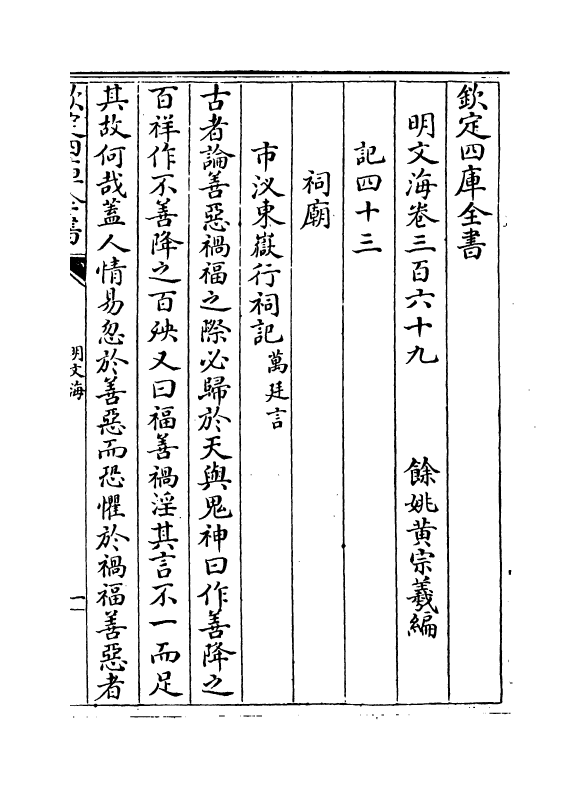 欽定四庫全書
明文海卷三百六十九　餘姚黄宗羲編
記四十三
祠廟
市汊東嶽行祠記 萬廷言
古者論善惡禍福之際必歸於天與鬼神曰作善降之
百祥作不善降之百殃又曰福善禍淫其言不一而足
其故何哉蓋人情易忽於善惡而恐懼於禍福善惡者
明文海
一